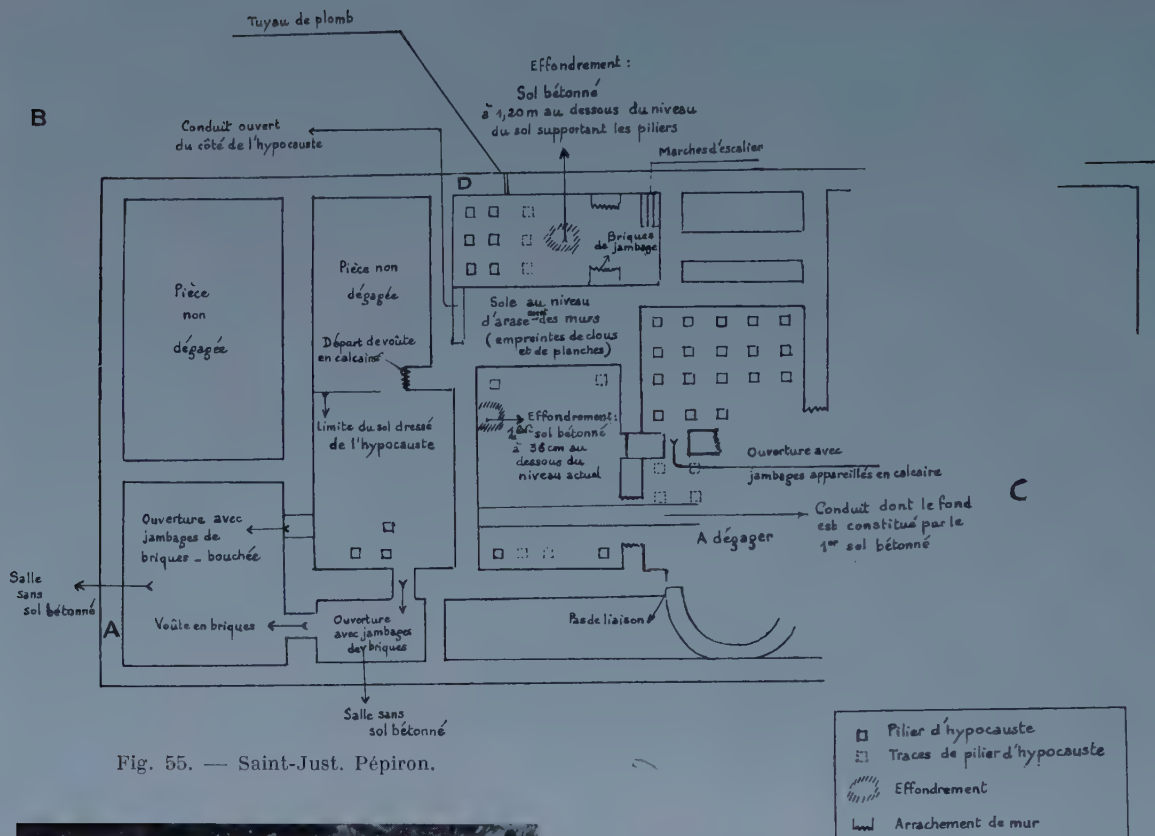 Tuyau de plomb
Effondrement :
Sol bétonné
à 1,20 m au dessous du niveau
du sol supportant les piliers
B
Conduit ouvert
du côté de l'hypocauste
Marches d'escalier
D
Briques
de jambage
Pièce
non
dégagée
Pièce non
dégagée
Sole au niveau
d'arase des murs
(empreintes de clous
et de planches)
Départ de voûte
en calcaire
Limite du sol dressé
de l'hypocauste
Effondrement :
1er sol bétonné
à 36 cm au
dessous du
niveau actual
Ouverture avec
jambages appareillés en calcaire
C
Conduit dont le fond
est constitué par le
1er sol bétonné
A dégager
Ouverture avec
jambages de
briques _ bouchée
Salle
sans
sol bétonné
A
Voûte en briques
Ouverture
avec jambages
de briques
Pas de liaison
Salle sans
sol bétonné
Fig. 55. — Saint-Just. Pépiron.
Pilier d'hypocauste
Traces de pilier d'hypocauste
Effondrement
Arrachement de mur